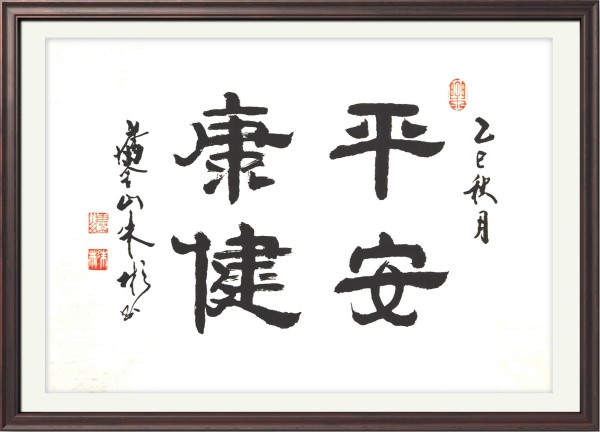 乙巳秋月
平安
康健
山朱彬书